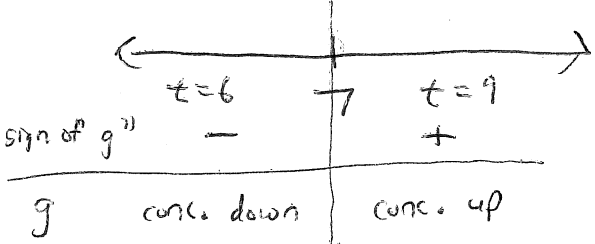 t=6 7 t=9
sign of g" − +
g conc. down conc. up